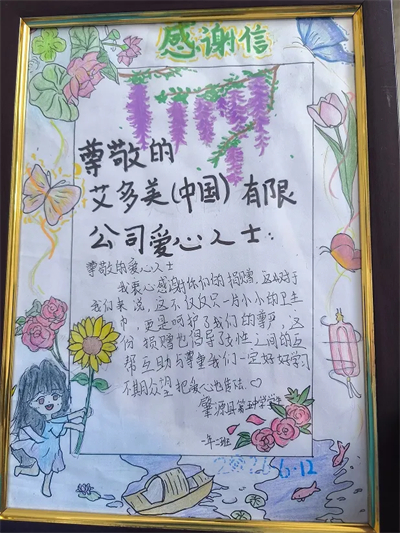 感谢信
尊敬的
艾多美(中国)有限
公司爱心人士:
尊敬的爱心人士
我衷心感谢你们的捐赠,这对于
我们来说,这不仅仅只一片小小的卫生
巾,更是呵护了我们的尊严,这
份捐赠也倡导了女性之间的互
帮互助与尊重我们一定好好学习
不期众望把爱心也传活。♡
肇源县第五中学学生
一年二班
6.12